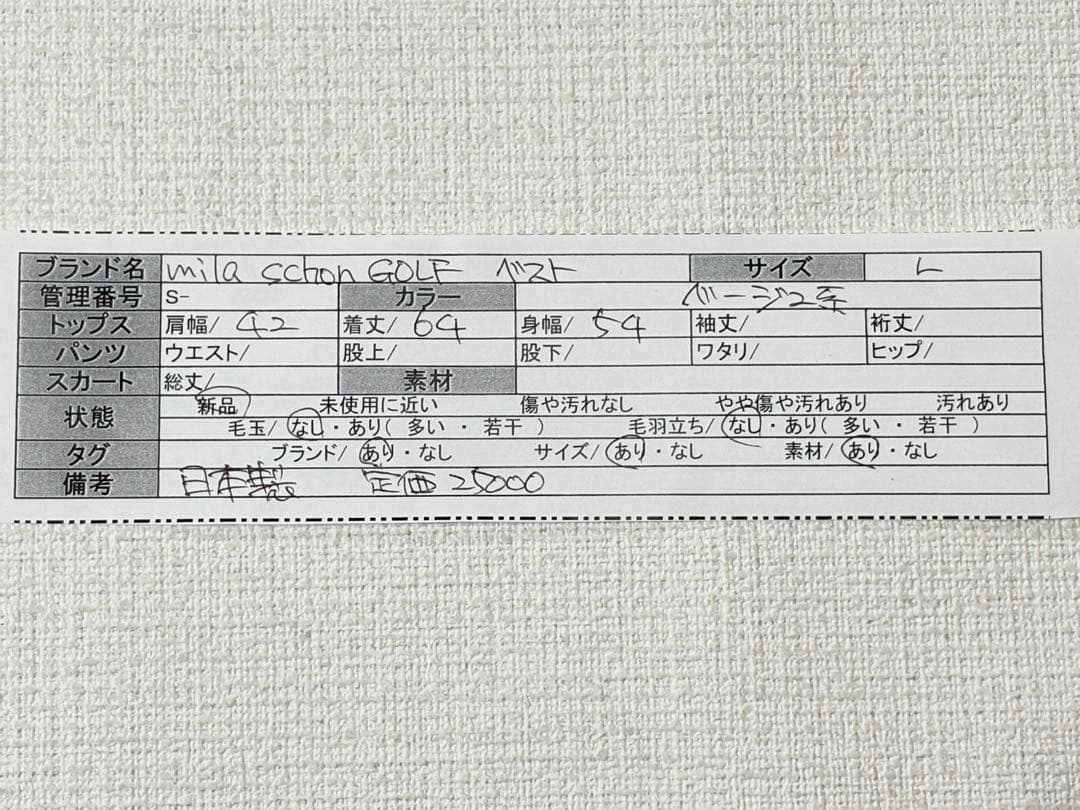 ブランド名 mila schon GOLF ベスト サイズ L
管理番号 S- カラー ベージュ系
トップス 肩幅/ 42 着丈/ 64 身幅/ 54 袖丈/ 裄丈/
パンツ ウエスト/ 股上/ 股下/ ワタリ/ ヒップ/
スカート 総丈/ 素材
状態 新品 未使用に近い 傷や汚れなし やや傷や汚れあり 汚れあり
毛玉/ なし・あり( 多い ・ 若干 ) 毛羽立ち/ なし・あり( 多い ・ 若干 )
タグ ブランド/ あり・なし サイズ/ あり・なし 素材/ あり・なし
備考 日本製 定価 25000